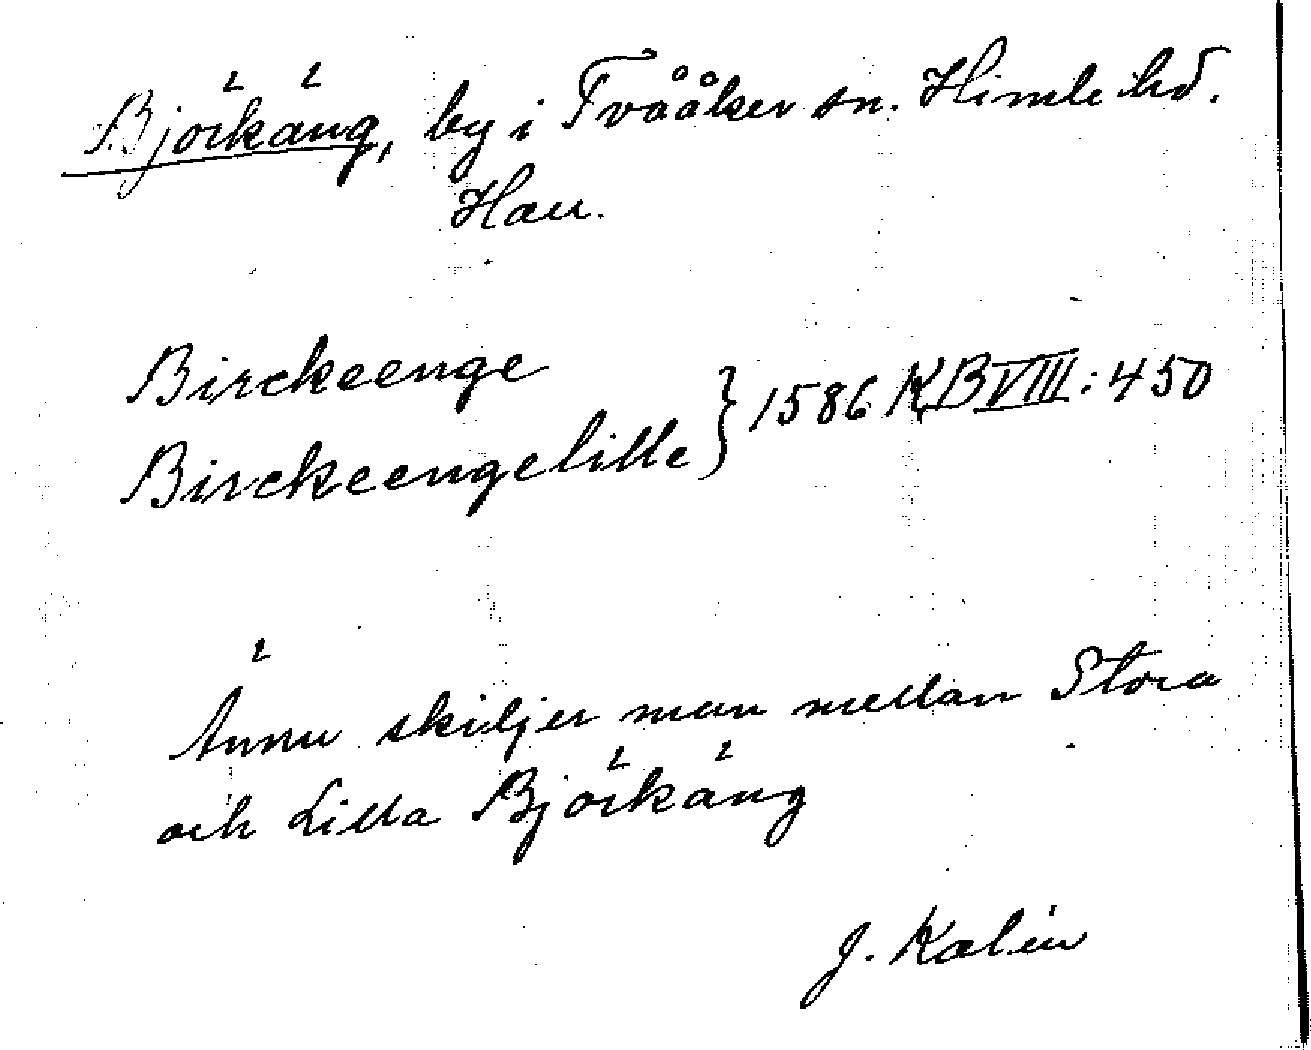 Björkäng, by i Tvååker sn. Himle hd.
Hall.
Birckeenge
Birckeengelille } 1586 KB VIII: 450
Ännu skiljer man mellan Stora
och Lilla Björkäng
J. Kalén